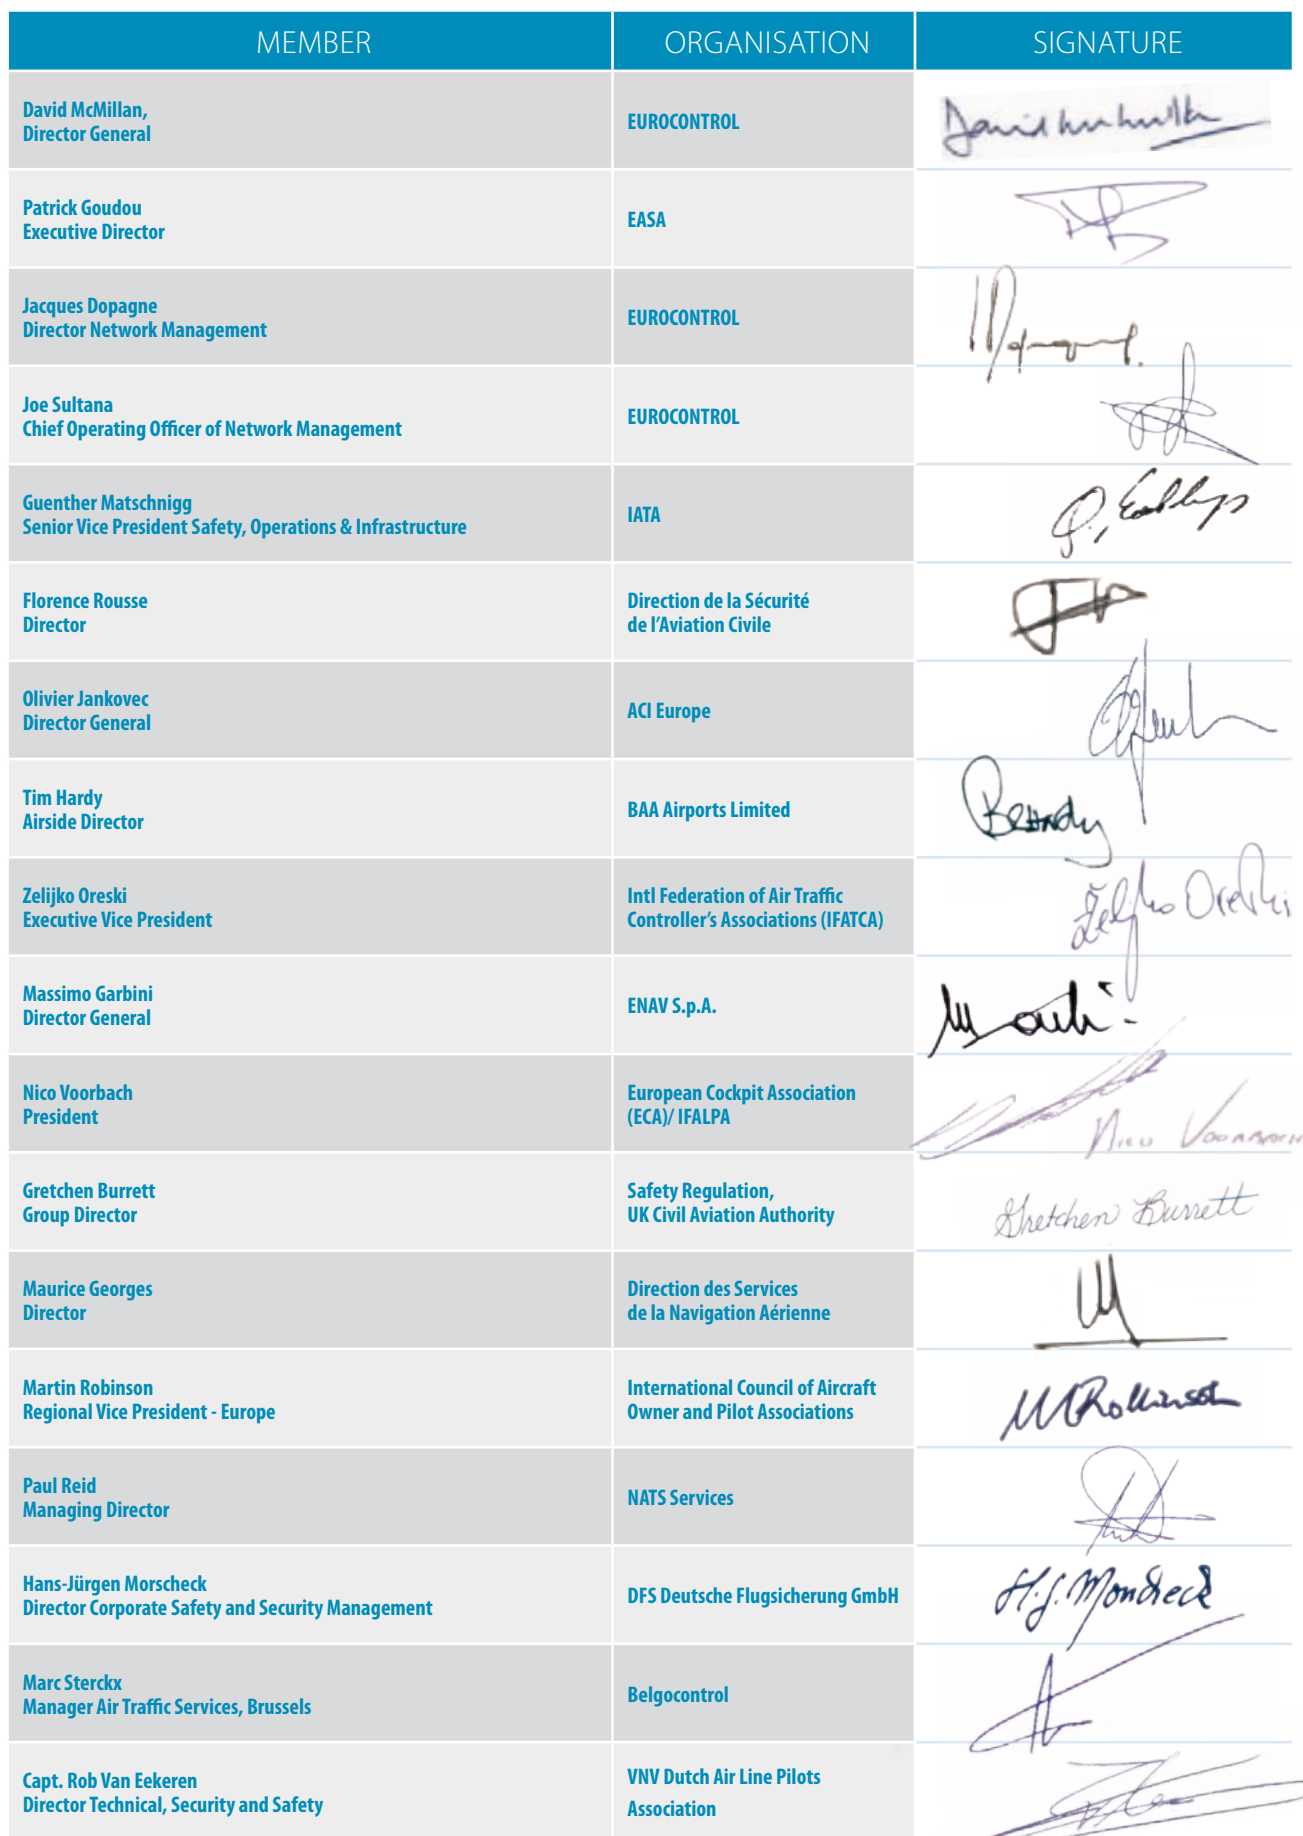 MEMBER ORGANISATION SIGNATURE
David McMillan,
Director General
EUROCONTROL
Patrick Goudou
Executive Director
EASA
Jacques Dopagne
Director Network Management
EUROCONTROL
Joe Sultana
Chief Operating Officer of Network Management
EUROCONTROL
Guenther Matschnigg
Senior Vice President Safety, Operations & Infrastructure
IATA
Florence Rousse
Director
Direction de la Sécurité
de l'Aviation Civile
Olivier Jankovec
Director General
ACI Europe
Tim Hardy
Airside Director
BAA Airports Limited
Zelijko Oreski
Executive Vice President
Intl Federation of Air Traffic
Controller's Associations (IFATCA)
Željko Oreški
Massimo Garbini
Director General
ENAV S.p.A.
Nico Voorbach
President
European Cockpit Association
(ECA)/ IFALPA
Nico Voorbach
Gretchen Burrett
Group Director
Safety Regulation,
UK Civil Aviation Authority
Gretchen Burrett
Maurice Georges
Director
Direction des Services
de la Navigation Aérienne
Martin Robinson
Regional Vice President - Europe
International Council of Aircraft
Owner and Pilot Associations
Paul Reid
Managing Director
NATS Services
Hans-Jürgen Morscheck
Director Corporate Safety and Security Management
DFS Deutsche Flugsicherung GmbH
Marc Sterckx
Manager Air Traffic Services, Brussels
Belgocontrol
Capt. Rob Van Eekeren
Director Technical, Security and Safety
VNV Dutch Air Line Pilots
Association